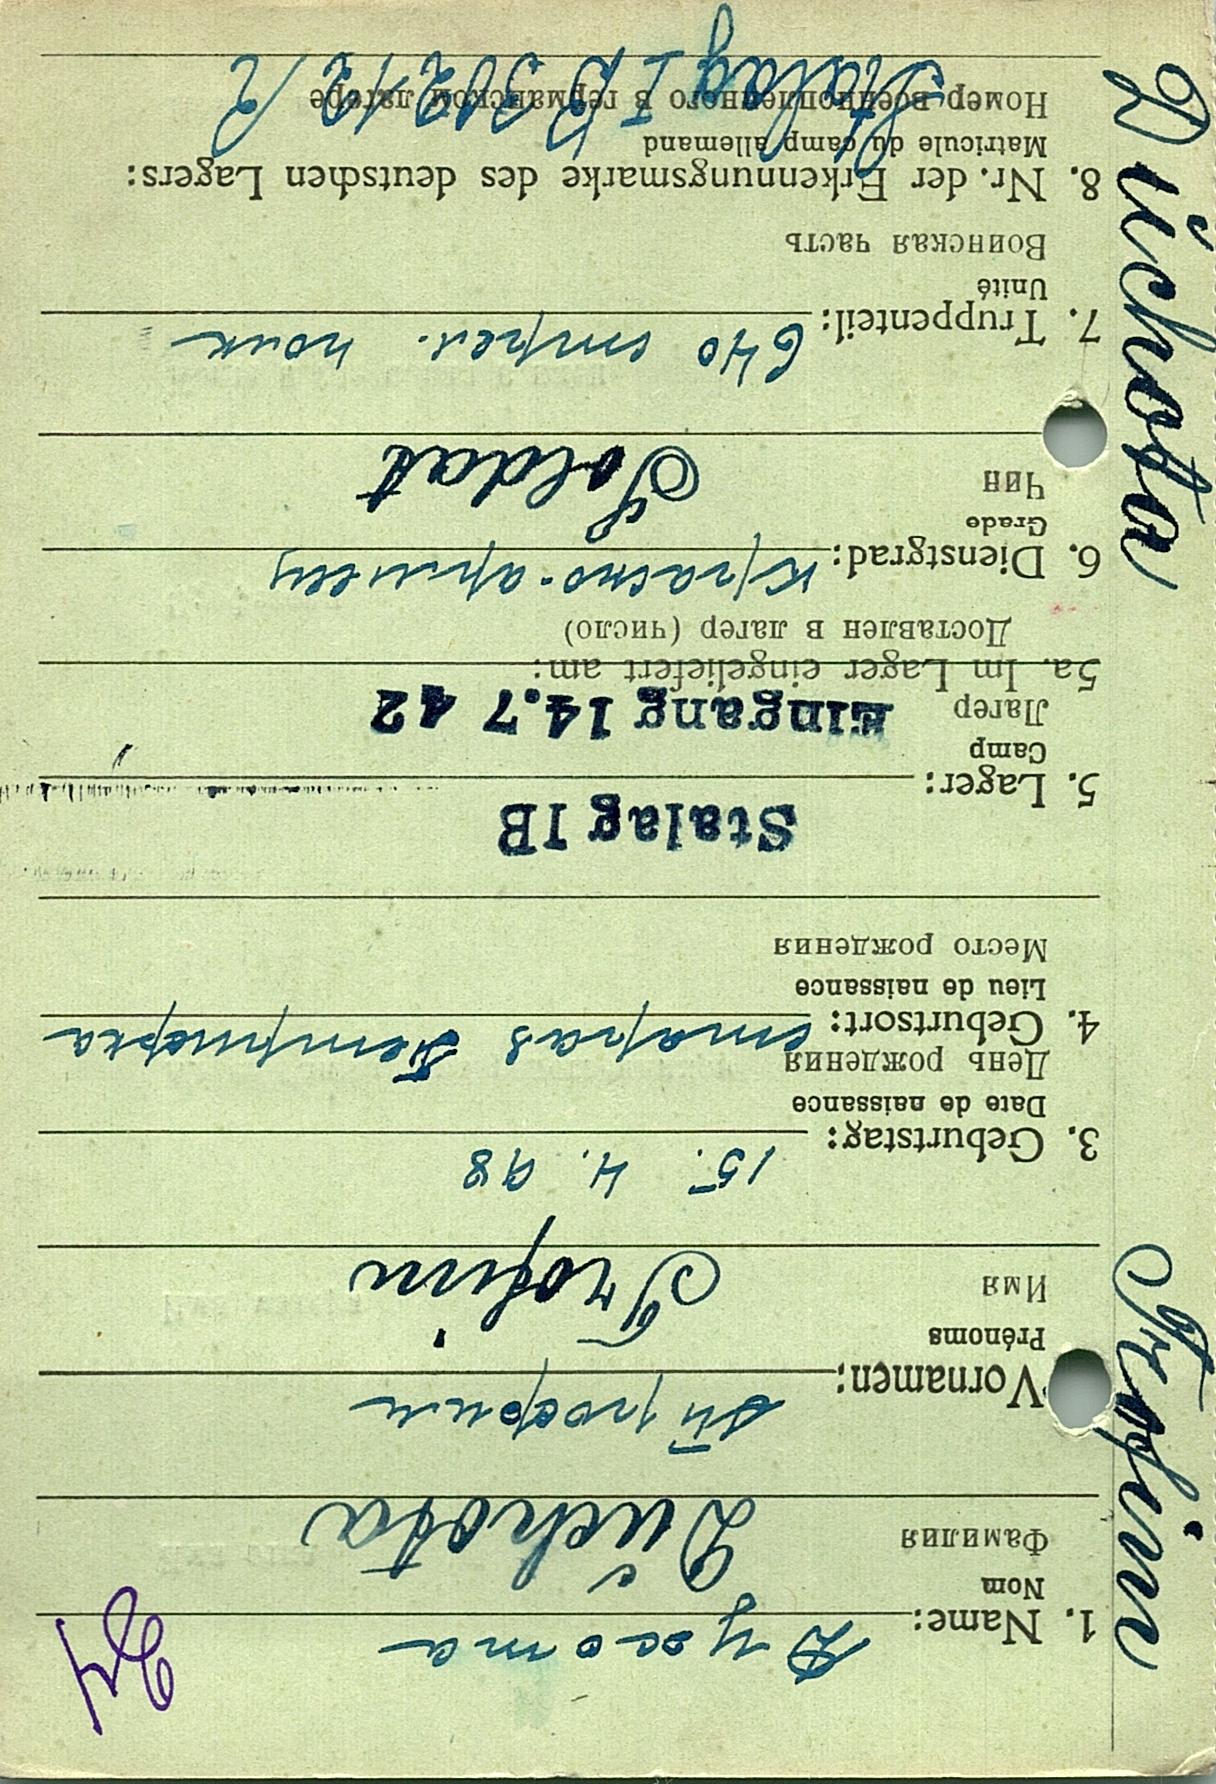 Духота
1. Name:
Nom
Фамилия
Duchota
Трофим
Vornamen:
Prénoms
Имя
Trofim
15. 4. 98
3. Geburtstag:
Date de naissance
День рождения
4. Geburtsort: старая
Lieu de naissance
Место рождения
Stalag IB
5. Lager:
Camp
Лагер
Eingang 14.7 42
5a. Im Lager eingeliefert am:
Доставлен в лагер (число)
6. Dienstgrad: красно-армеец
Grade
Чин
Soldat
640 стрел. полк
7. Truppenteil:
Unité
Воинская часть
8. Nr. der Erkennungsmarke des deutschen Lagers:
Matricule du camp allemand
Номер военнопленного в германском лагере
Stalag I B
Duchota Trofim